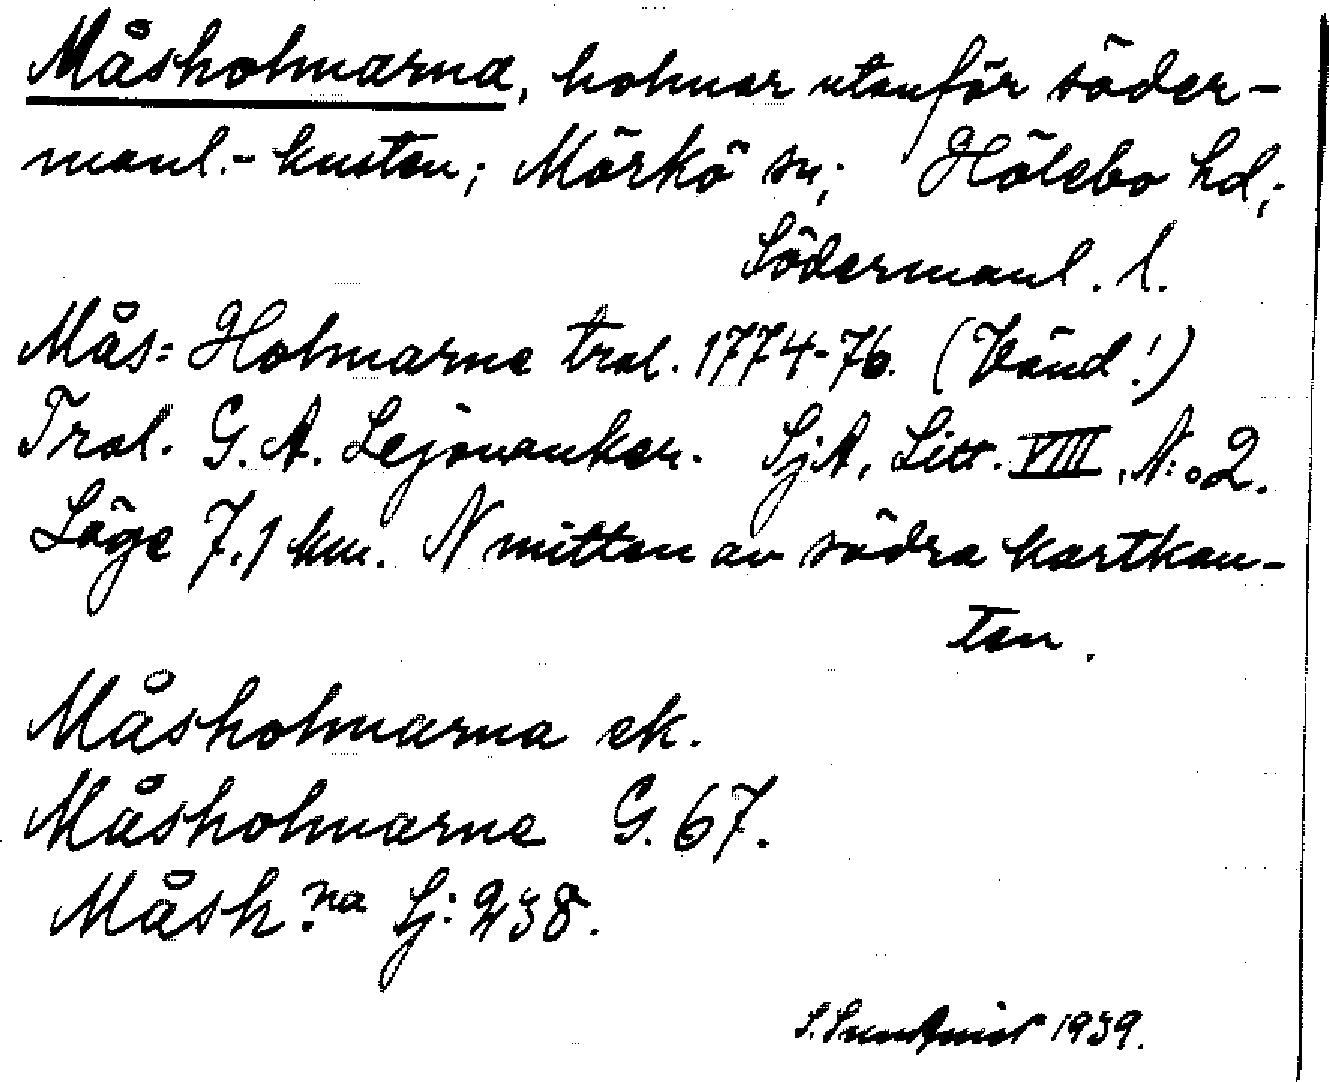 Måsholmarna, holmar utanför söder-
manl.-kusten; Mörkö sn; Hölebo hd;
Södermanl. l.
Mås=Holmarne tral. 1774-76. (Vänd!)
Tral. G. A. Lejonanker. SjA, Litt. VIII, N:o 2.
Läge 7,1 km. N mitten av södra kartkan-
ten.
Måsholmarna ek.
Måsholmarne G. 67.
Måsh:na Sj: 238.
S. 1939.